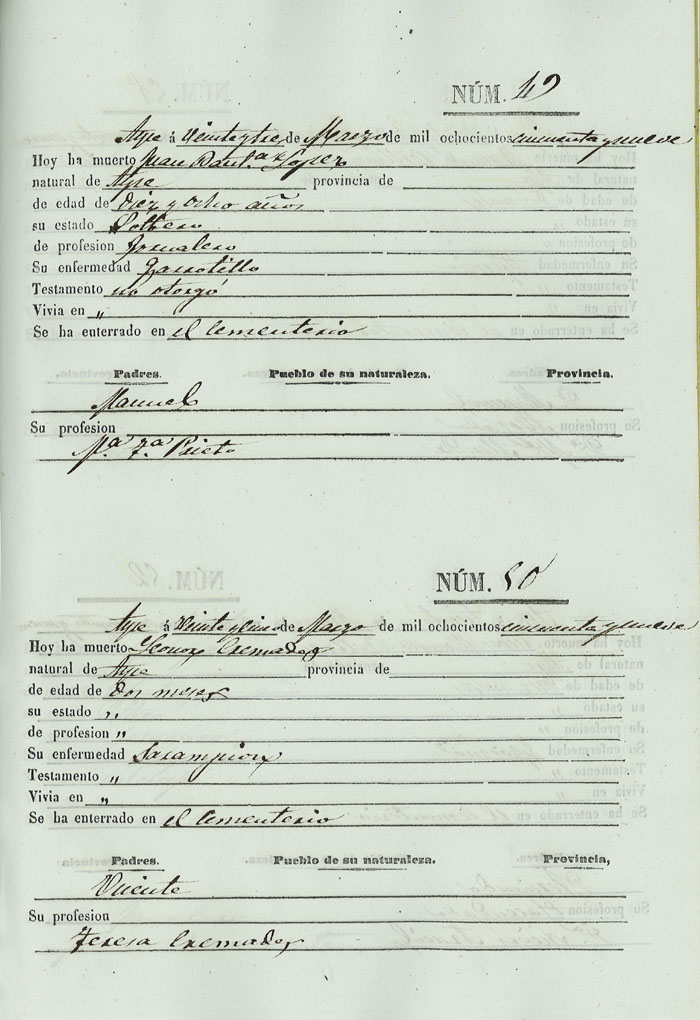 NÚM. 49
Aspe á Veinte y tres de Marzo de mil ochocientos cincuenta y nueve
Hoy ha muerto Juan Baut.ª Lopez
natural de Aspe provincia de
de edad de Diez y Ocho años
su estado Soltero
de profesion Jornalero
Su enfermedad Garrotillo
Testamento no otorgó
Vivia en „
Se ha enterrado en el Cementerio
Padres. Pueblo de su naturaleza. Provincia.
Manuel
Su profesion
M.ª Prieto
NÚM. 50
Aspe á Veinte y cinco de Marzo de mil ochocientos cincuenta y nueve
Hoy ha muerto Leonor Cremades
natural de Aspe provincia de
de edad de Dos meses
su estado „
de profesion „
Su enfermedad Sarampion
Testamento „
Vivia en „
Se ha enterrado en el Cementerio
Padres. Pueblo de su naturaleza. Provincia,
Vicente
Su profesion
Teresa Cremades